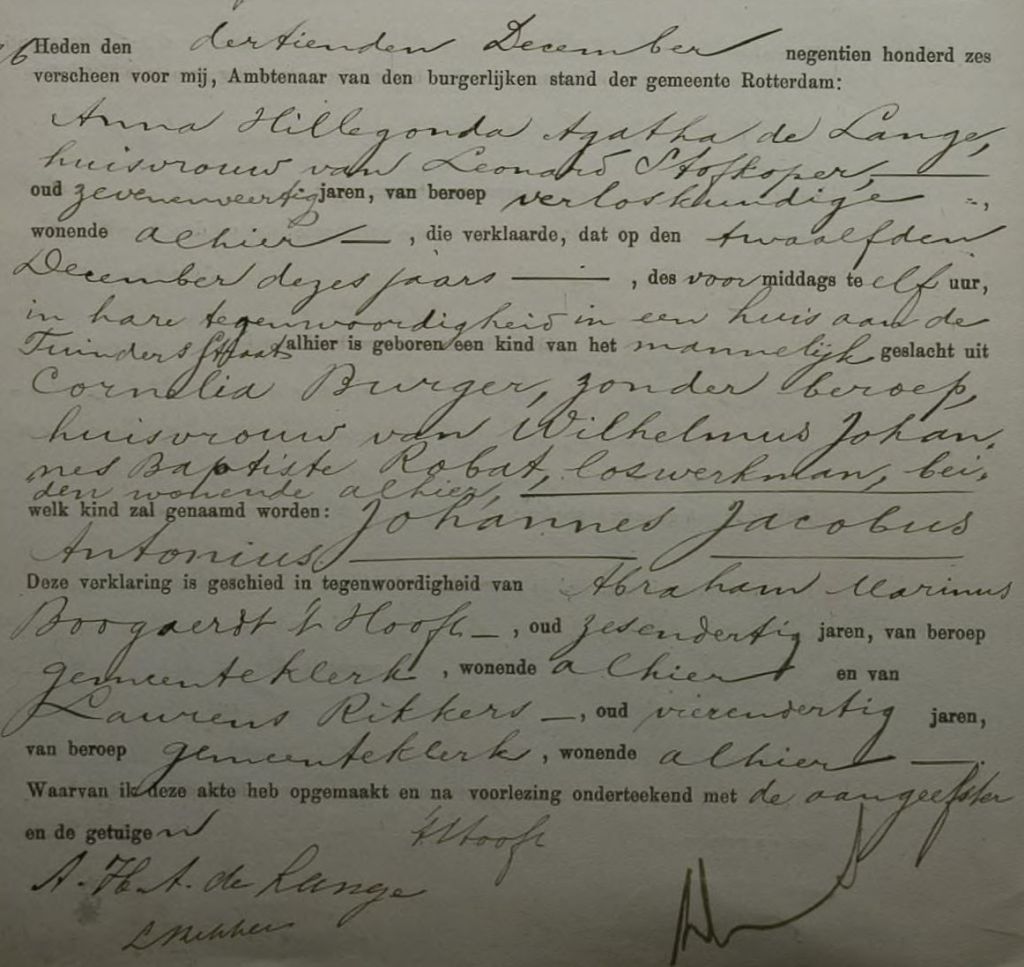 Heden den dertienden December negentien honderd zes
verscheen voor mij, Ambtenaar van den burgerlijken stand der gemeente Rotterdam:
Anna Hillegonda Agatha de Lange,
huisvrouw van Leonard Stofkoper,
oud zevenenveertig jaren, van beroep verloskundige,
wonende alhier, die verklaarde, dat op den twaalfden
December dezes jaars, des voormiddags te elf uur,
in hare tegenwoordigheid in een huis aan de
Tuindersstraat alhier is geboren een kind van het mannelijk geslacht uit
Cornelia Burger, zonder beroep,
huisvrouw van Wilhelmus Johan-
nes Baptiste Robat, loswerkman, bei-
den wonende alhier,
welk kind zal genaamd worden: Johannes Jacobus
Antonius
Deze verklaring is geschied in tegenwoordigheid van Abraham Marinus
Boogaerdt 't Hooft, oud zesendertig jaren, van beroep
gemeenteklerk, wonende alhier en van
Laurens Rikkers, oud vierendertig jaren,
van beroep gemeenteklerk, wonende alhier.
Waarvan ik deze akte heb opgemaakt en na voorlezing onderteekend met de aangeefster
en de getuigen
't Hooft
A. H. A. de Lange
L Rikkers